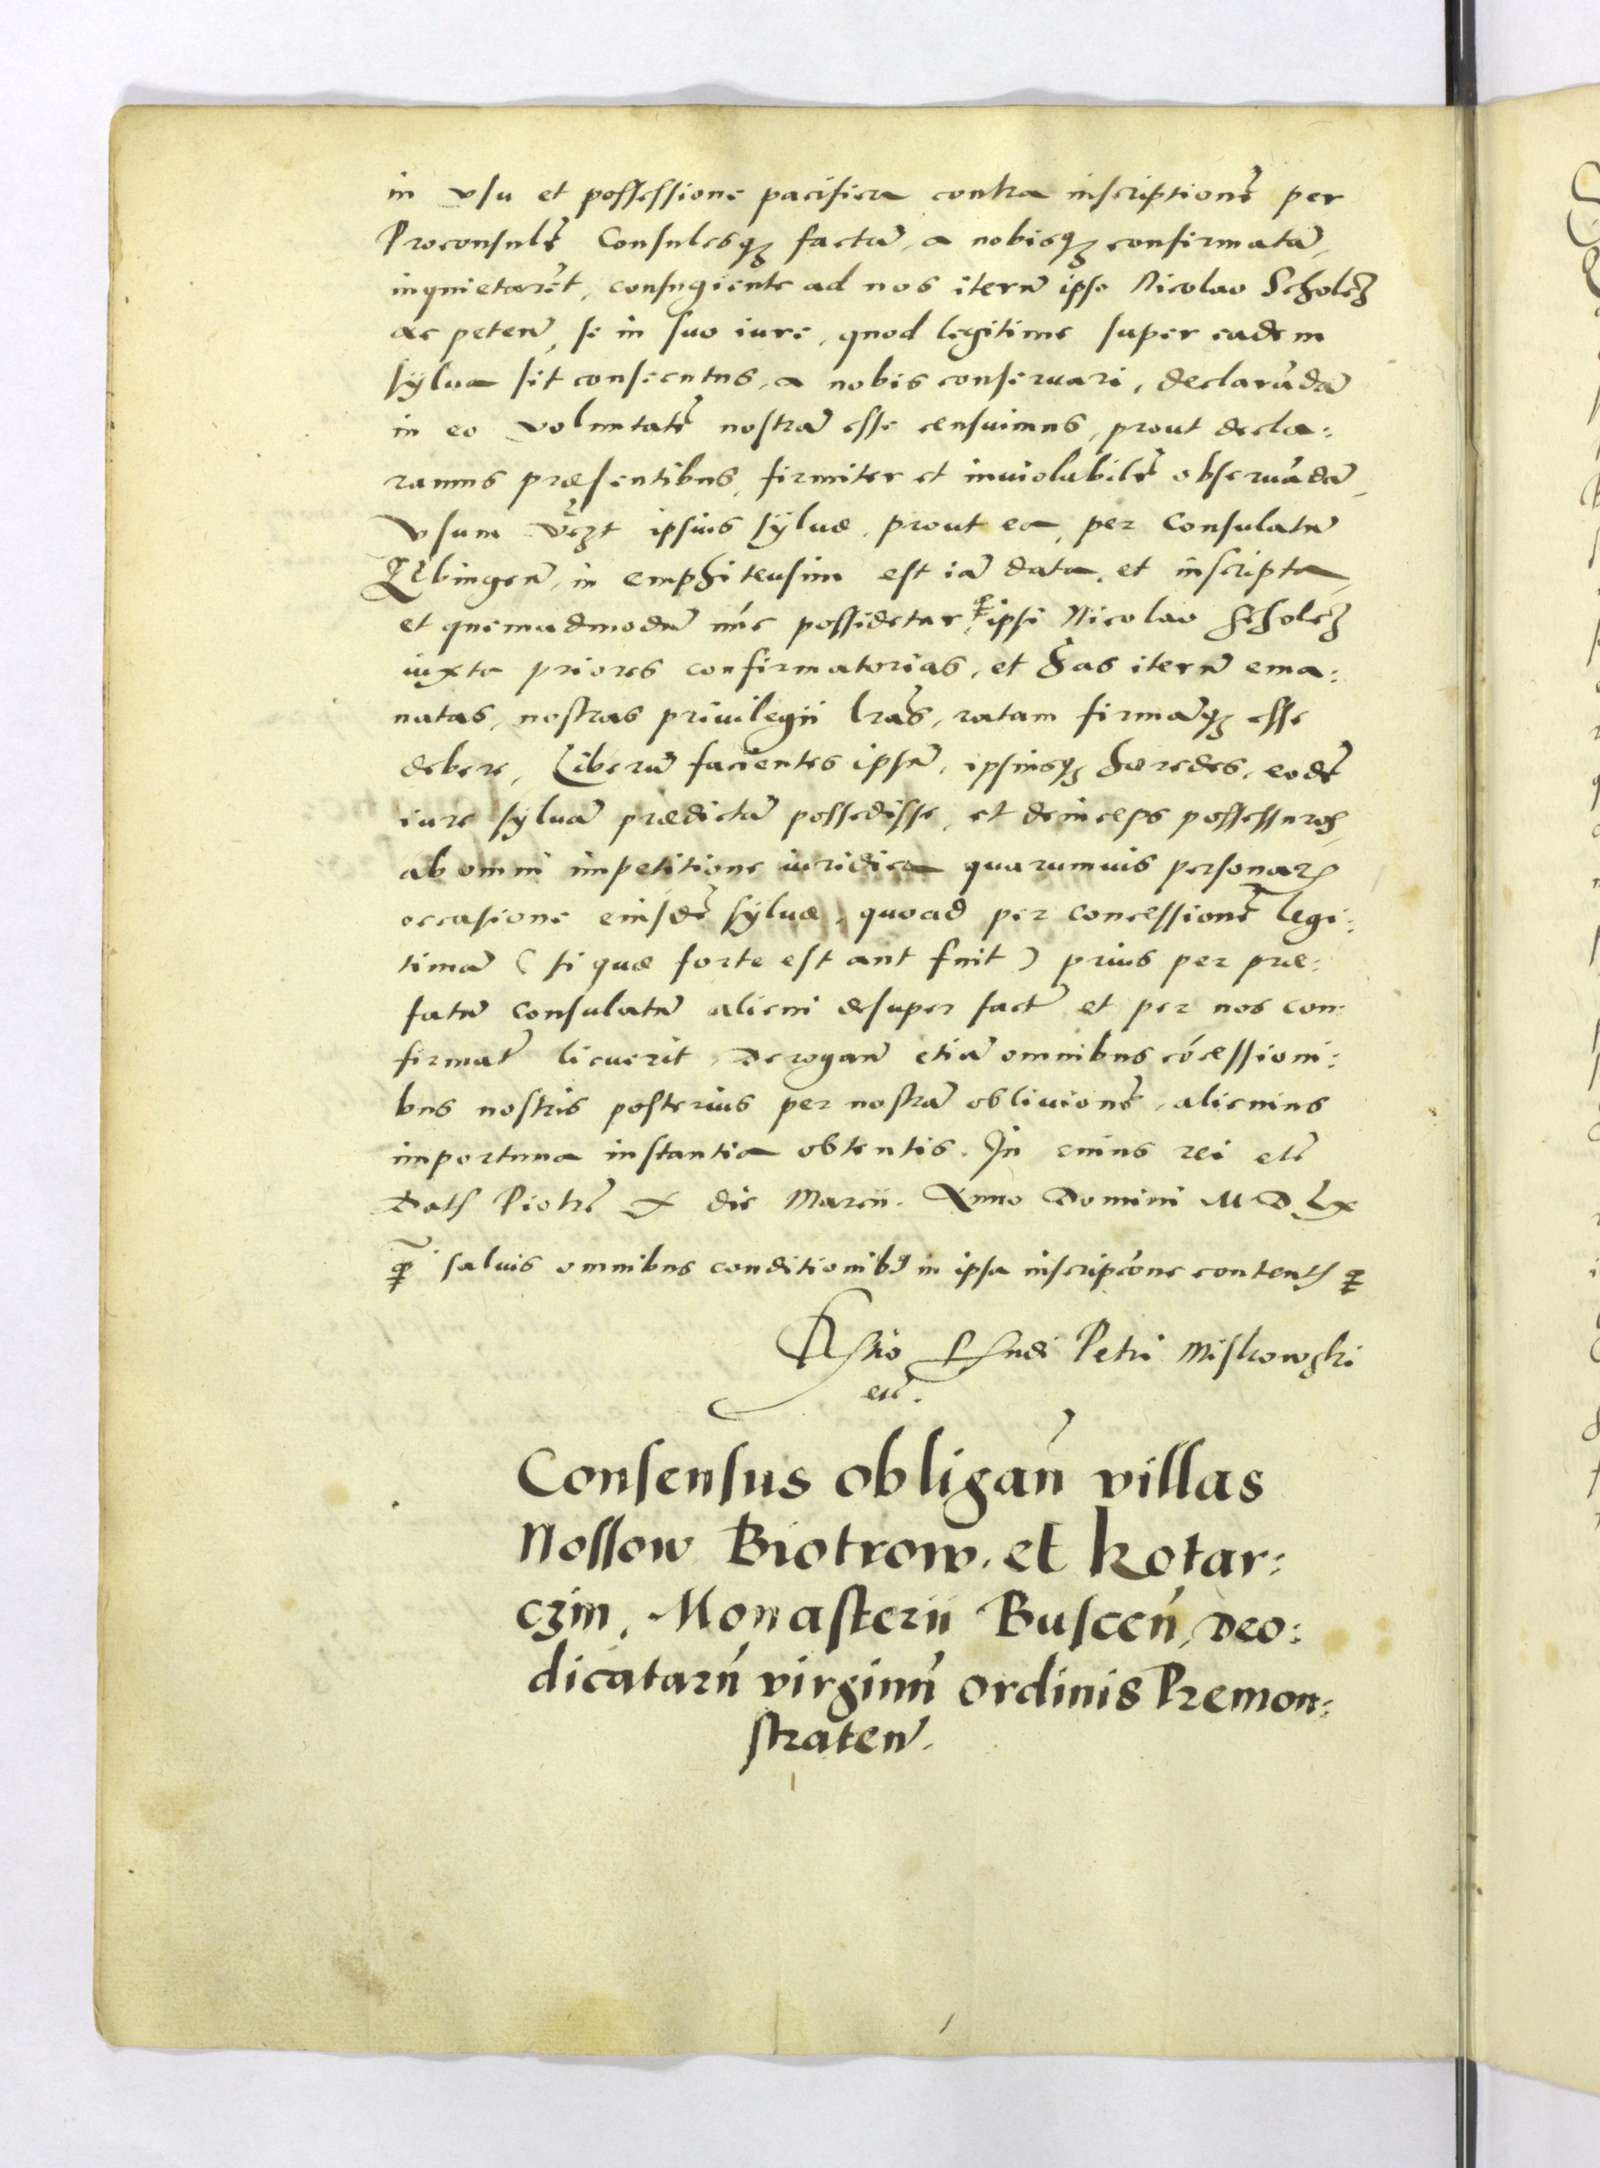 in vsu et possessione pacifica contra inscriptionẽ per
Proconsulẽ Consulesqʒ factã, a nobisqʒ confirmatã,
inquietarẽt, confugiente ad nos iterũ ipso Nicolao Scholcʒ
ac peteñ, se in suo iure, quod legitime super eadem
sÿlua sit consecutus, a nobis conseruari, declarãdã
in eo voluntatẽ nostrã esse censuimus, prout decla:
ramus præsentibus, firmiter et inuiolabilẽ obseruãdã,
vsum vcʒt ipsius sÿluæ, prout ea, per Consulatũ
Elbingeñ, in emphiteusim est iã data, et inscripta,
et quemadmodũ nũc possidetur, ipsi Nicolao Scholcʒ
iuxta priores confirmatorias, et has iterũ ema:
natas, nostras privilegii lr̃as, ratam firmãqʒ esse
debere, Liberũ facientes ipsũ, ipsiusqʒ hæredes, eodẽ
iure sÿluã prædictã possedisse, et deinceps possessuros,
ab omni impetitione iuridica quarumuis personarꝝ
occasione eiusdẽ sÿluæ, quoad per concessionẽ legi:
timã (si quæ forte est aut fuit) prius per præ:
fatũ Consulatũ alicui desuper fact̃ et per nos con:
firmat̃ licuerit, Derogañ etiã omnibus cõcessioni:
bus nostris posterius per nostrã obliuionẽ, alicuius
importuna instantia obtentis. In cuius rei etc̃
Datũ Piotrc̃ X die Marcii. Anno Domini MDLX
saluis omnibus conditionibꝰ in ipsa inscripcõne content̃
Rt̃io Rñdi Petri Miskowski
etc̃.
Consensus obligañ villas
Nossow Biotrow. et Kotar:
cʒin, Monasterii Busceñ, Deo:
dicatarũ virginũ ordinis Premon:
strateñ.